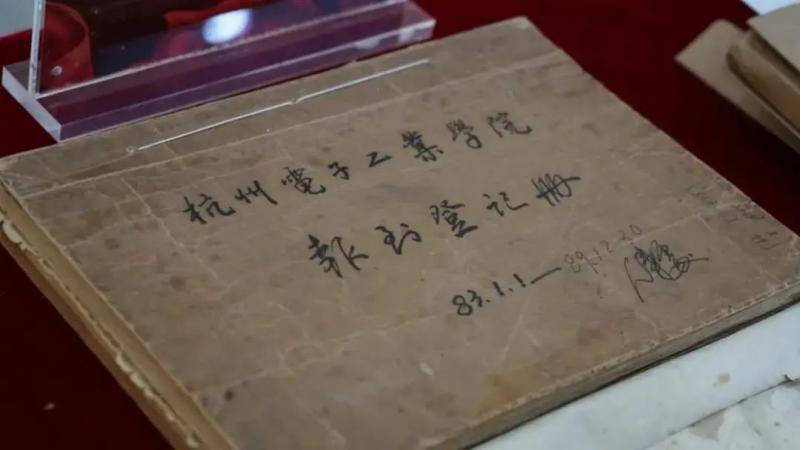 杭州電子工業學院
報到登记册
83.1.1—89.12.20